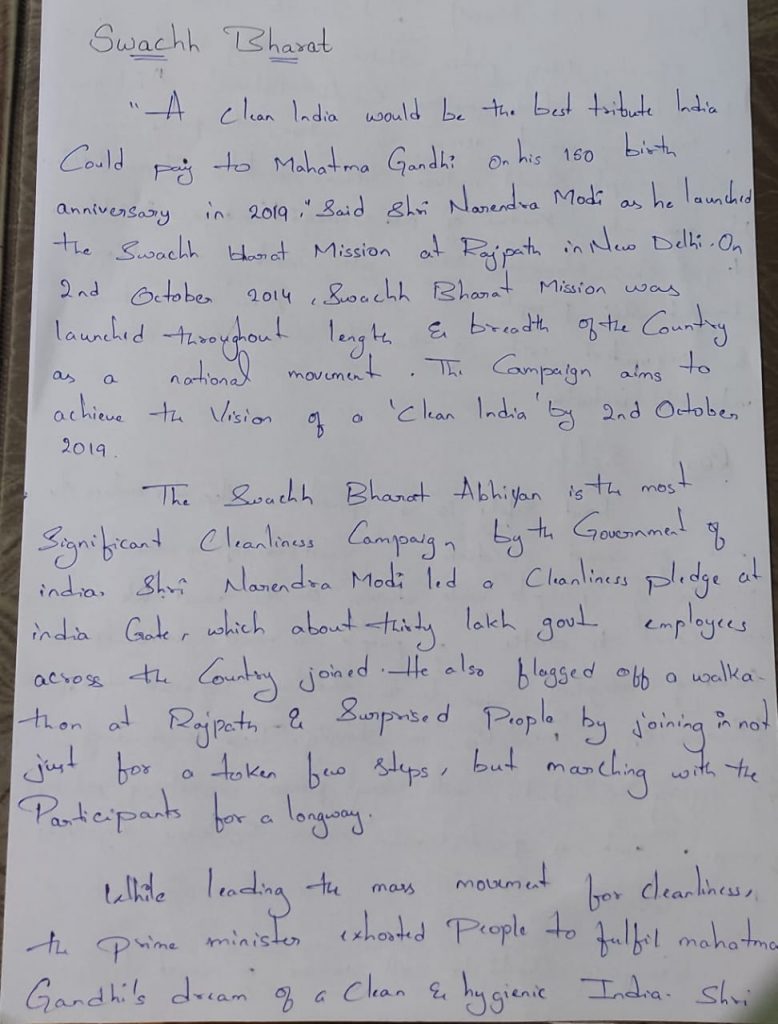 Swachh Bharat
"A clean India would be the best tribute India
Could pay to Mahatma Gandhi on his 150 birth
anniversary in 2019," Said Shri Narendra Modi as he launched
the Swachh bharat Mission at Rajpath in New Delhi. On
2nd October 2014, Swachh Bharat Mission was
launched throughout length & breadth of the Country
as a national movement. The Campaign aims to
achieve the Vision of a 'Clean India' by 2nd October
2019.
The Swachh Bharat Abhiyan is the most
Significant Cleanliness Campaign by the Government of
india. Shri Narendra Modi led a Cleanliness pledge at
india Gate, which about thirty lakh govt employees
across the Country joined. He also flagged off a walka-
thon at Rajpath & Surprised People by joining in not
just for a token few steps, but marching with the
Participants for a longway.
While leading the mass movement for cleanliness,
the Prime minister exhorted People to fulfil mahatma
Gandhi's dream of a Clean & hygienic India. Shri